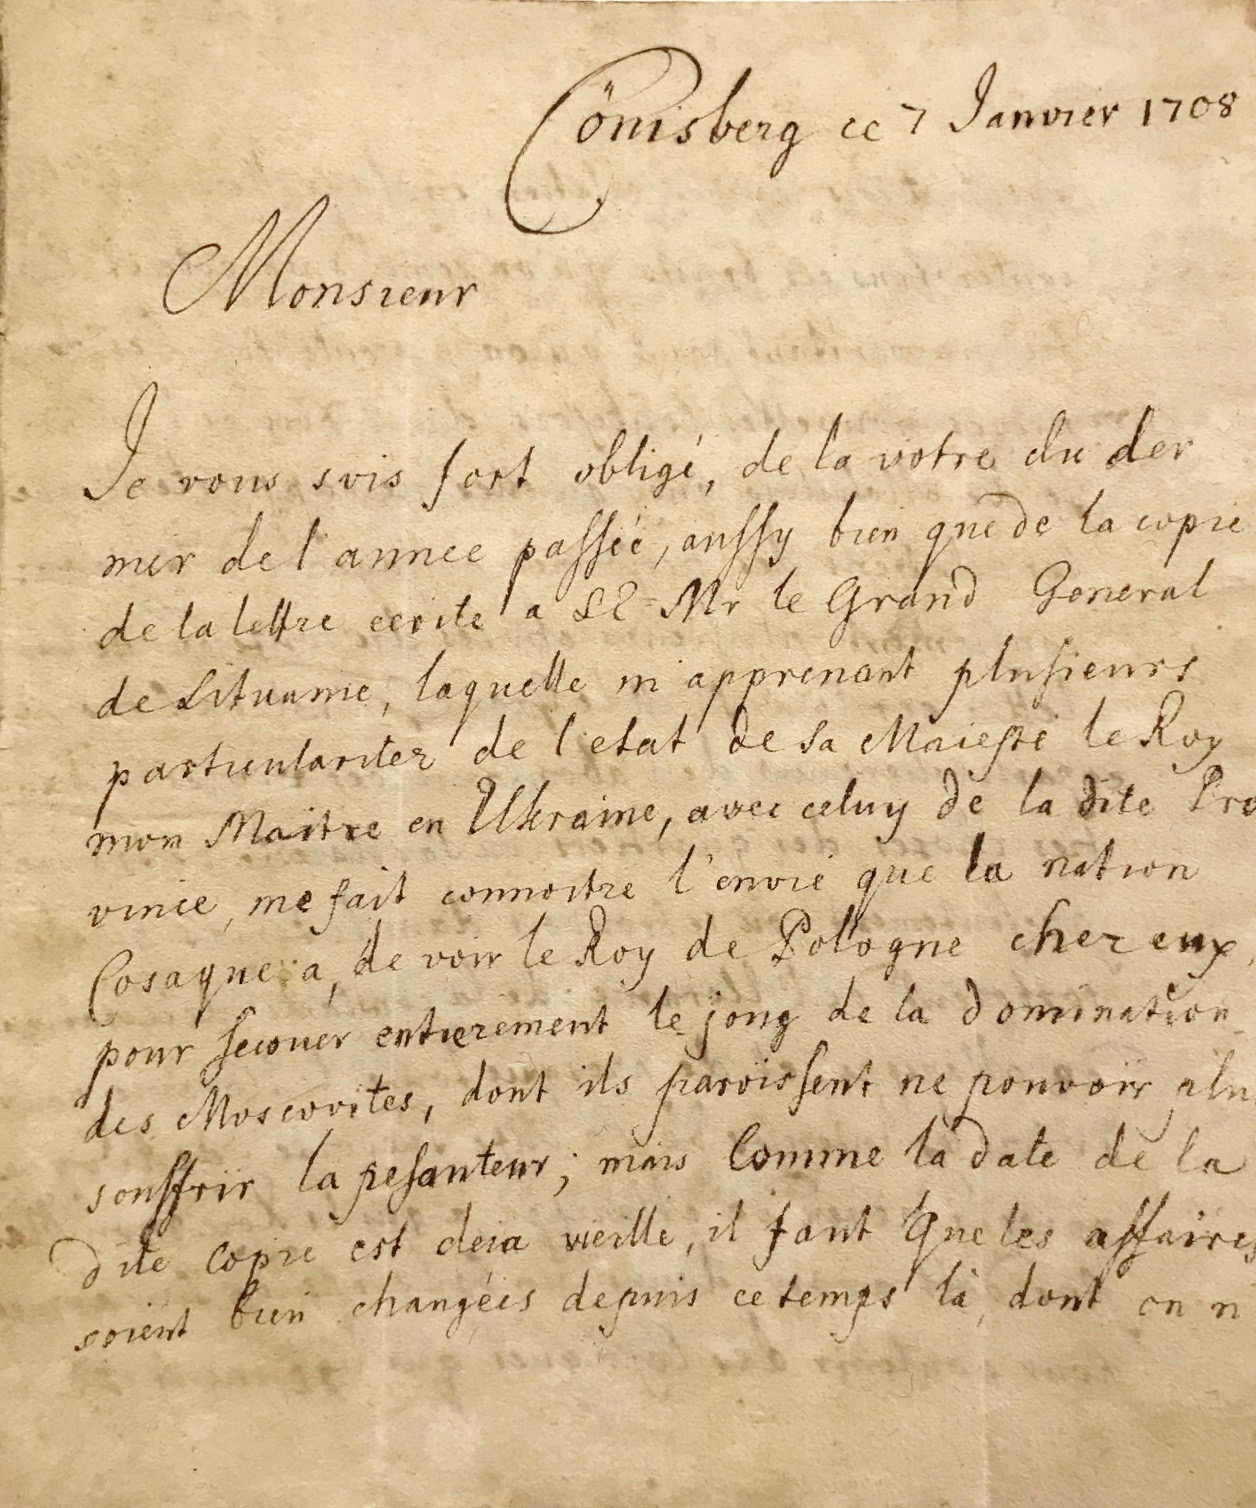 Cönisberg ce 7 Janvier 1708
Monsieur
Je vous suis fort obligé, de la votre du der
nier de l'annee passéé, aussy bien que de la copie
de la lettre ecrite a SE Mr le Grand General
de Lituanie, laquelle m'apprenant plusieurs
particularitez de l'etat de Sa Maiesté le Roy
mon Maitre en Ukraine, avec celuy de la dite Pro
vince, me fait connoitre l'envie que la nation
Cosaque a, de voir le Roy de Pologne chez eux,
pour secouer entierement le joug de la domination
des Moscovites, dont ils paroissent ne pouvoir plu
souffrir la pesanteur; mais Comme la date de la
dite Copie est deia vieille, il faut que les affaires
soient bien changéés depuis ce temps là, dont on n